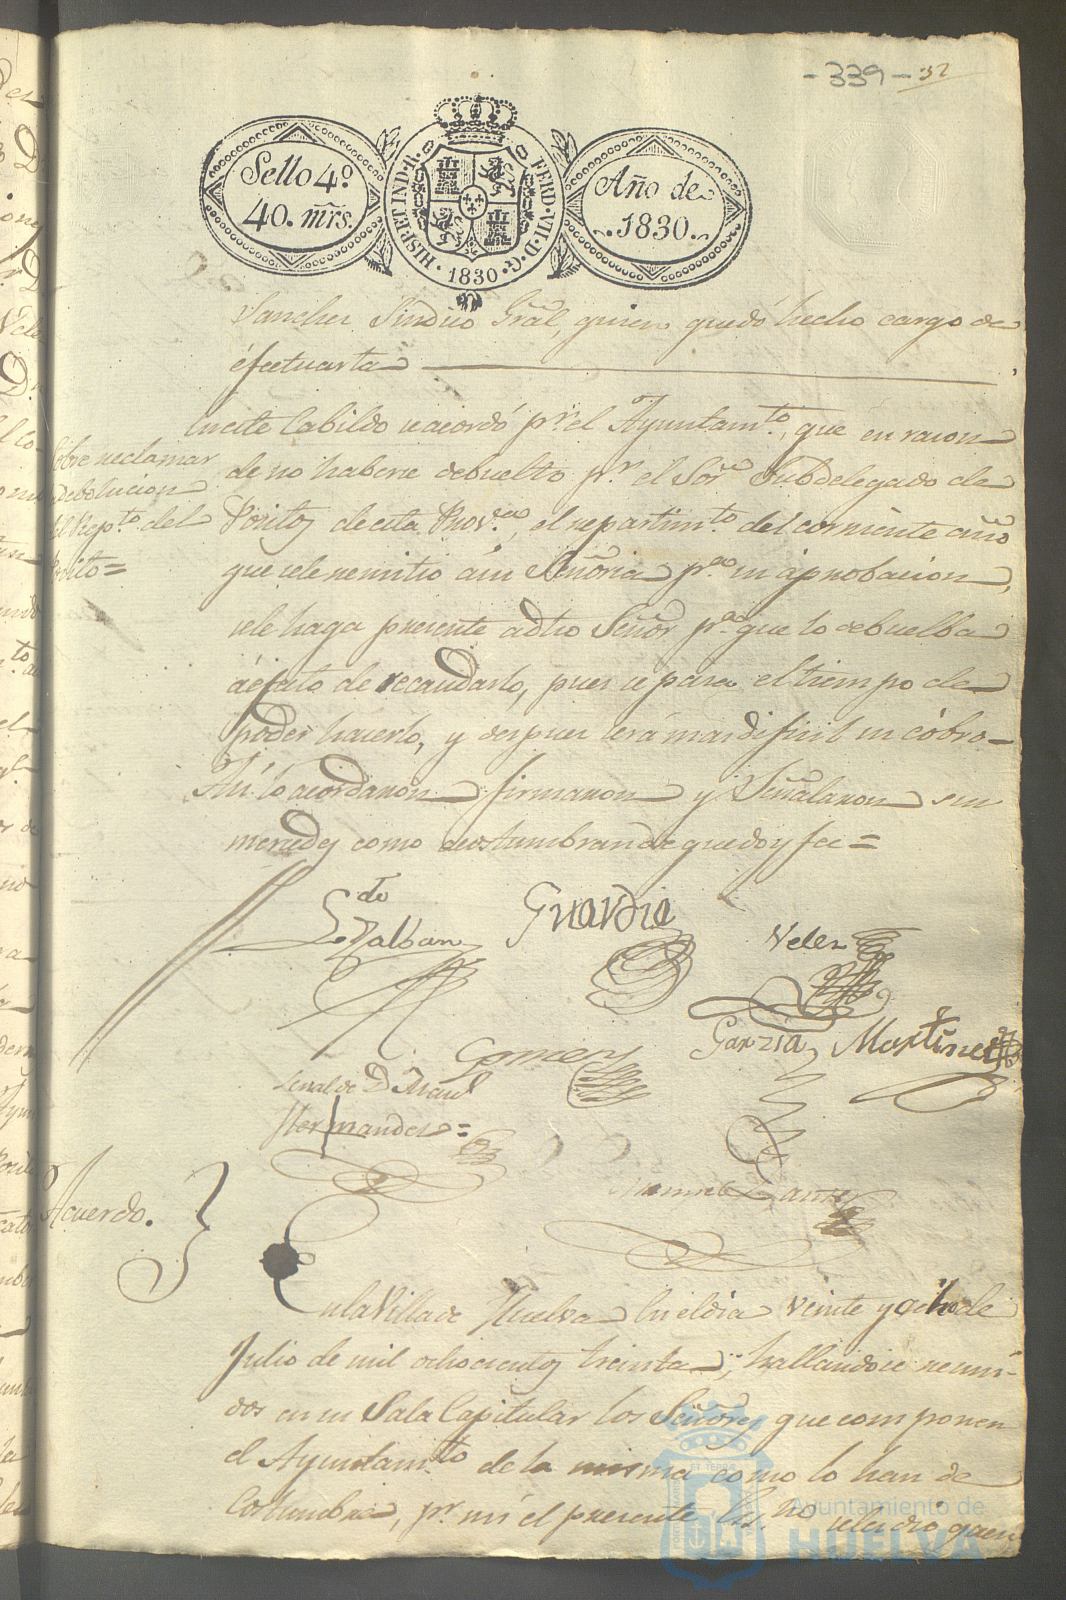 -339- 32
Sello 4º
40. mrs.
HISP.ET IND.R.
FERD.VII.D.G.
1830
Año de
1830.
Sanchez Sindico Gral, quien quedó hecho cargo de
éfectuarla
Sobre reclamar
debolucion
del Rep.to del
Posito=
En este Cabildo se acordó p.r el Ayuntam.to, que en razon
de no haberse debuelto p.r el Sor. Subdelegado de
Positos de esta Prov.ca, el repartim.to del corriente año
que se le remitió á su Señoria p.a su aprobacion,
se le haga presente a dho Señor p.a que lo debuelba
á éfecto de recaudarlo, pues se pasa el tiempo de
poder hacerlo, y despues será mas dificil su cobro-
Asi lo acordaron firmaron y Señalaron sus
mercedes como acostumbran de que doy fee=
L.do
Guardia
Velez
Garzia
Martinez
Gomez
Señal de D. Man.l
Hernandez=
Acuerdo.
En la Villa de Huelva En el dia veinte y ocho de
Julio de mil ochocientos treinta, hallandose reuni-
dos en su Sala Capitular los Señores que componen
el Ayuntam.to de la misma como lo han de
Costumbre, p.r mi el presente Es.no se les dió quen
Ayuntamiento de
HUELVA